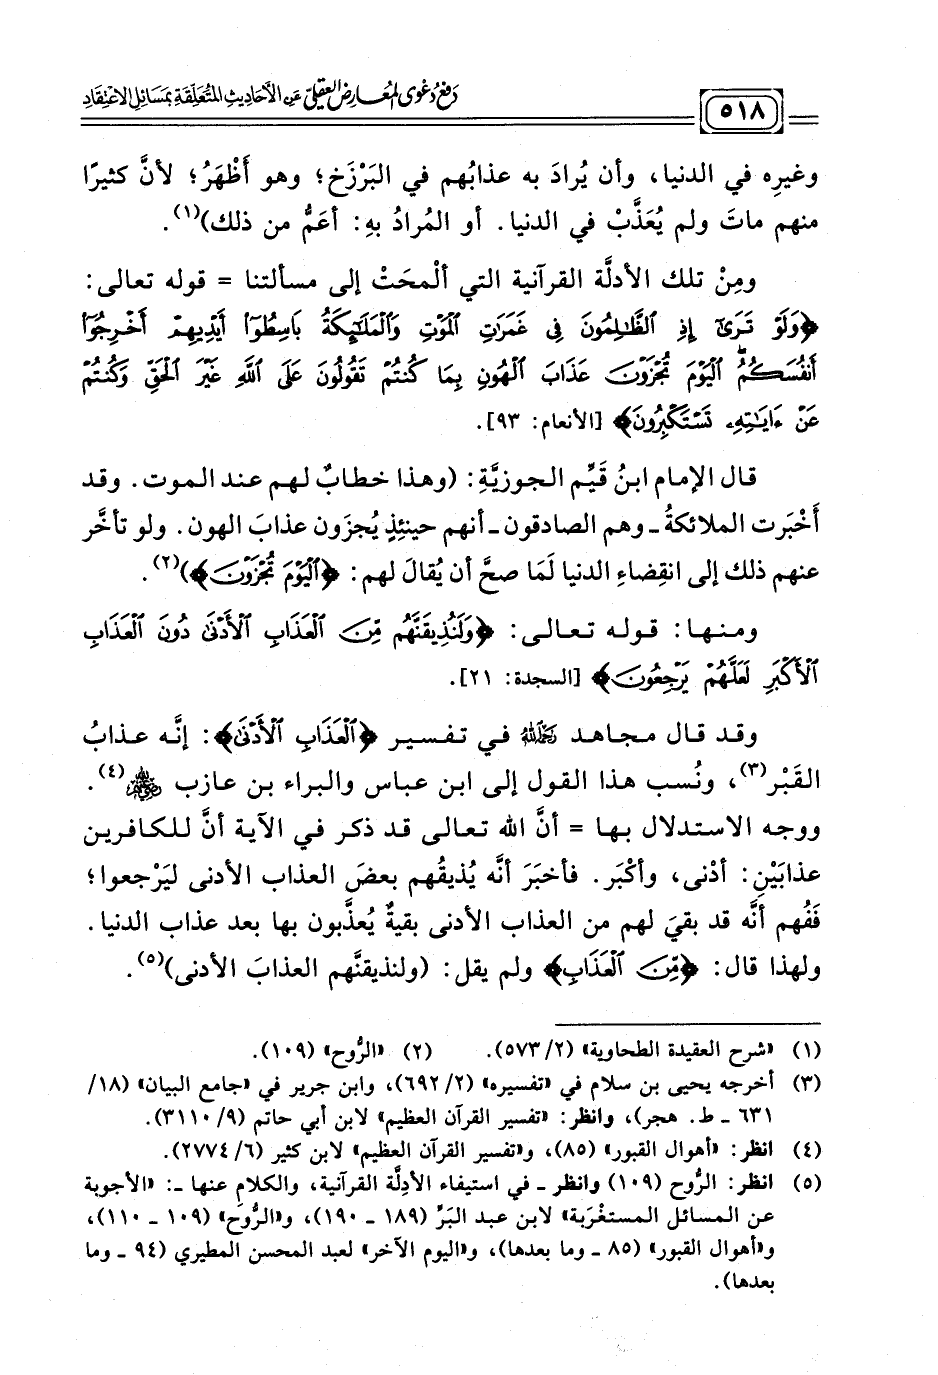 ٥١٨
دفع دعوى المعارض العقلي عن الأحاديث المتعلقة بمسائل الاعتقاد
وغيرِه في الدنيا، وأن يُرادَ به عذابُهم في البَرْزَخ؛ وهو أَظْهَرُ؛ لأنَّ كثيرًا
منهم ماتَ ولم يُعَذَّبْ في الدنيا. أو المُرادُ بهِ: أعَمُّ من ذلك)(١).
ومِنْ تلك الأدلَّة القرآنية التي ألْمحَتْ إلى مسألتنا = قوله تعالى:
﴿وَلَوْ تَرَىٰٓ إِذِ ٱلظَّٰلِمُونَ فِى غَمَرَٰتِ ٱلْمَوْتِ وَٱلْمَلَٰٓئِكَةُ بَاسِطُوٓا۟ أَيْدِيهِمْ أَخْرِجُوٓا۟
أَنفُسَكُمُ ۖ ٱلْيَوْمَ تُجْزَوْنَ عَذَابَ ٱلْهُونِ بِمَا كُنتُمْ تَقُولُونَ عَلَى ٱللَّهِ غَيْرَ ٱلْحَقِّ وَكُنتُمْ
عَنْ ءَايَٰتِهِۦ تَسْتَكْبِرُونَ﴾ [الأنعام: ٩٣].
قال الإمام ابنُ قَيِّم الجوزيَّةِ: (وهذا خطابٌ لهم عند الموت. وقد
أخْبَرت الملائكةُ ـ وهم الصادقون ـ أنهم حينئِذٍ يُجزَون عذابَ الهون. ولو تأخَّر
عنهم ذلك إلى انقِضاءِ الدنيا لَمَا صحَّ أن يُقالَ لهم: ﴿ٱلْيَوْمَ تُجْزَوْنَ﴾)(٢).
ومنها: قوله تعالى: ﴿وَلَنُذِيقَنَّهُم مِّنَ ٱلْعَذَابِ ٱلْأَدْنَىٰ دُونَ ٱلْعَذَابِ
ٱلْأَكْبَرِ لَعَلَّهُمْ يَرْجِعُونَ﴾ [السجدة: ٢١].
وقد قال مجاهد رحمه الله في تفسير ﴿ٱلْعَذَابِ ٱلْأَدْنَىٰ﴾: إنَّه عذابُ
القَبْر(٣)، ونُسب هذا القول إلى ابن عباس والبراء بن عازب رضي الله عنهم(٤).
ووجه الاستدلال بها = أنَّ الله تعالى قد ذكر في الآية أنَّ للكافرين
عذابَيْنِ: أدْنى، وأكْبَر. فأخبَرَ أنَّه يُذيقُهم بعضَ العذاب الأدنى ليَرْجعوا؛
فَفُهم أنَّه قد بقيَ لهم من العذاب الأدنى بقيةٌ يُعذَّبون بها بعد عذاب الدنيا.
ولهذا قال: ﴿مِّنَ ٱلْعَذَابِ﴾ ولم يقل: (ولنذيقنَّهم العذابَ الأدنى)(٥).
(١) «شرح العقيدة الطحاوية» (٢/ ٥٧٣). (٢) «الرُّوح» (١٠٩).
(٣) أخرجه يحيى بن سلام في «تفسيره» (٢/ ٦٩٢)، وابن جرير في «جامع البيان» (١٨/
٦٣١ ـ ط. هجر)، وانظر: «تفسير القرآن العظيم» لابن أبي حاتم (٩/ ٣١١٠).
(٤) انظر: «أهوال القبور» (٨٥)، و«تفسير القرآن العظيم» لابن كثير (٦/ ٢٧٧٤).
(٥) انظر: الرُّوح (١٠٩) وانظر ـ في استيفاء الأدِلَّة القرآنية، والكلامِ عنها ـ: «الأجوبة
عن المسائل المستغْرَبة» لابن عبد البَرِّ (١٨٩ ـ ١٩٠)، و«الرُّوح» (١٠٩ ـ ١١٠)،
و«أهوال القبور» (٨٥ ـ وما بعدها)، و«اليوم الآخر» لعبد المحسن المطيري (٩٤ ـ وما
بعدها).